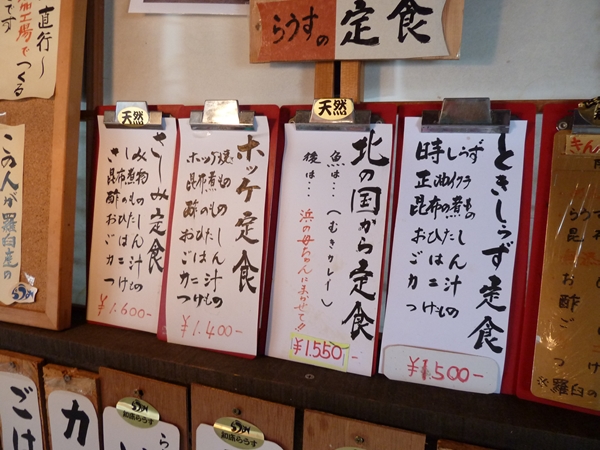 らうすの定食
直行〜
加工場でつくる
です
この人が羅臼産の
天然
さしみ定食
さしみ
昆布煮物
酢のもの
おひたし
ごはん
カニ汁
つけもの
¥1.600-
ホッケ定食
ホッケ焼
昆布煮もの
酢のもの
おひたし
ごはん
カニ汁
つけもの
¥1.400-
天然
北の国から定食
魚は…(むきカレイ)
後は…浜の母ちゃんにまかせて!!
¥1.550-
ときしらず定食
時しらず
正油イクラ
昆布の煮もの
おひたし
ごはん
カニ汁
つけもの
¥1500-
きん
らうす
昆布
お酢
ご
つ
※羅臼の
ごは
カ
知床らうす
知床らうす
ら